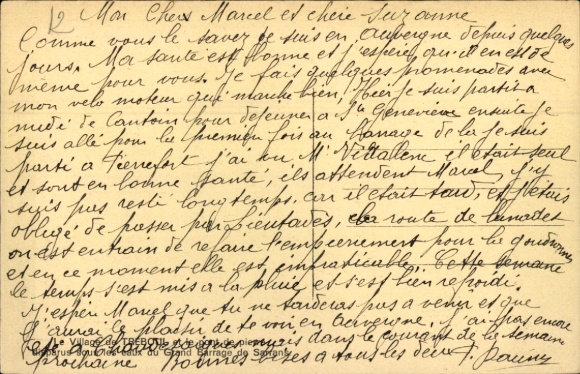 12
Mon Cher Marcel et chère Suzanne
Comme vous le savez je suis en Auvergne depuis quelques
jours. Ma santé est bonne et j'espère qu'il en est de
même pour vous. Je fais quelques promenades avec
mon velo moteur qui marche bien, Hier je suis parti a
midi de Cantoin pour dejeuner a Ste Geneviève ensuite je
suis allé pour la première fois au barrage de la je suis
parti a Pierrefort j'ai vu Mr Vidallenc il etait seul
et sont en bonne santé, ils attendent Marcel, j'y
suis pas resté longtemps car il etait tard, et j'etais
obligé de passer par Lieutadès, la route de lanuéjols
on est entrain de refaire l'empierrement pour la goudronner
et en ce moment elle est impraticable. Cette semaine
le temps s'est mis a la pluie et s'est bien refroidi.
J'espère Marcel que tu ne tarderas pas a venir et que
j'aurai le plaisir de te voir en Auvergne, j'ai pas encore
Le Village de TREBOUL et le pont de pierre
disparus sous les eaux du Grand Barrage de Sarrans
été a Chaudesaigues mais dans le courant de la semaine
prochaine Bonnes bises a tous les deux